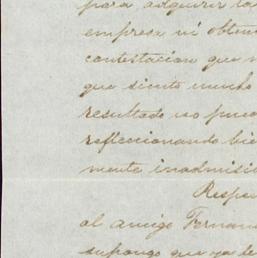 para adquirir la
empresa ni obten
contestacion que n
que siento mucho
resultado no pue
refleccionando bie
mente inadmisi
Respe
al amigo Fernan
supongo que ya de